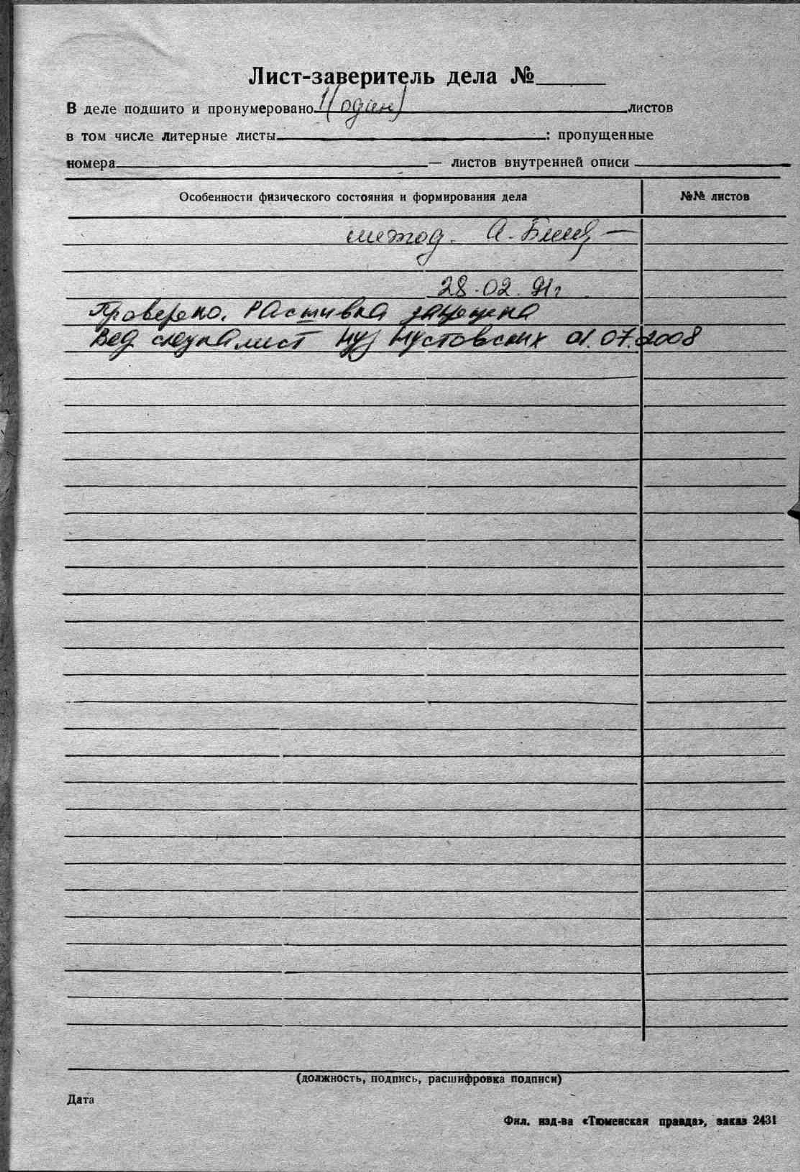 Лист-заверитель дела №
В деле подшито и пронумеровано 1 (один) листов
в том числе литерные листы : пропущенные
номера — листов внутренней описи
Особенности физического состояния и формирования дела №№ листов
А.
28.02.91г
Проверено. Расшивка запрещена
Вед специалист Пустовских 01.07.2008
(должность, подпись, расшифровка подписи)
Дата
Фил. изд-ва «Тюменская правда», заказ 2431